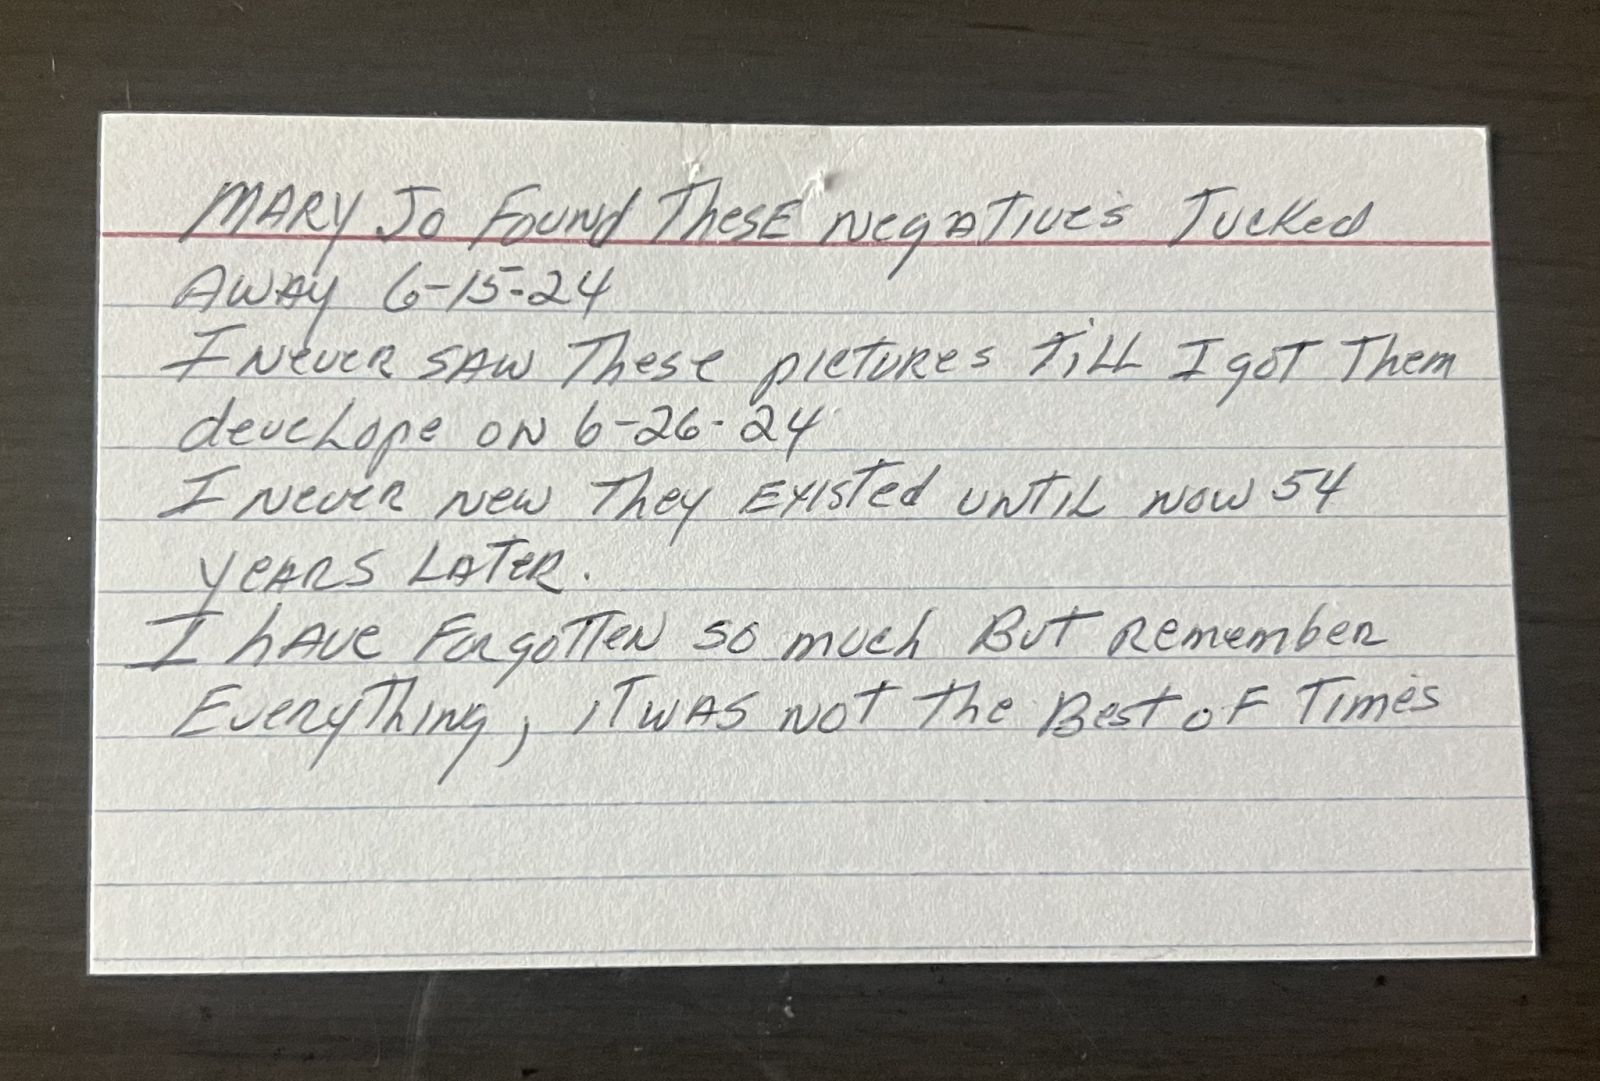 MARY Jo Found These Negatives Tucked
AWAY 6-15-24
I Never SAW These pictures Till I got Them
develope ON 6-26-24
I Never New They Existed UNTIL NOW 54
YEARS LATER.
I hAve Forgotten so much But Remember
Everything, iT WAS NOT The Best oF Times